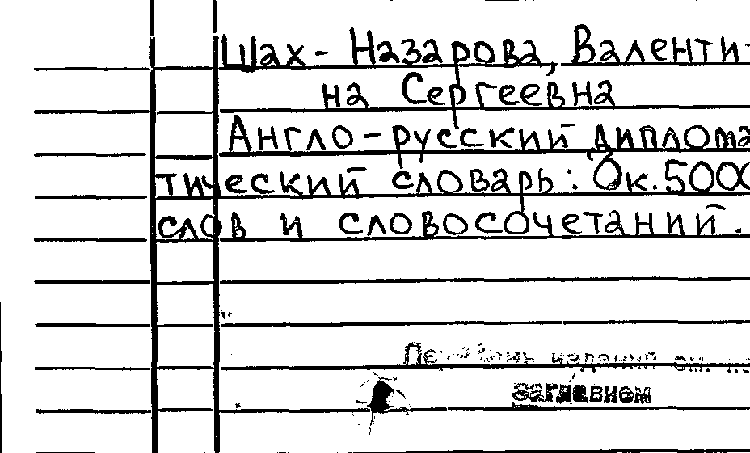 Шах-Назарова, Валенти-
на Сергеевна
Англо-русский диплома
тический словарь: Ок. 5000
слов и словосочетаний.
издания см.
заглавием